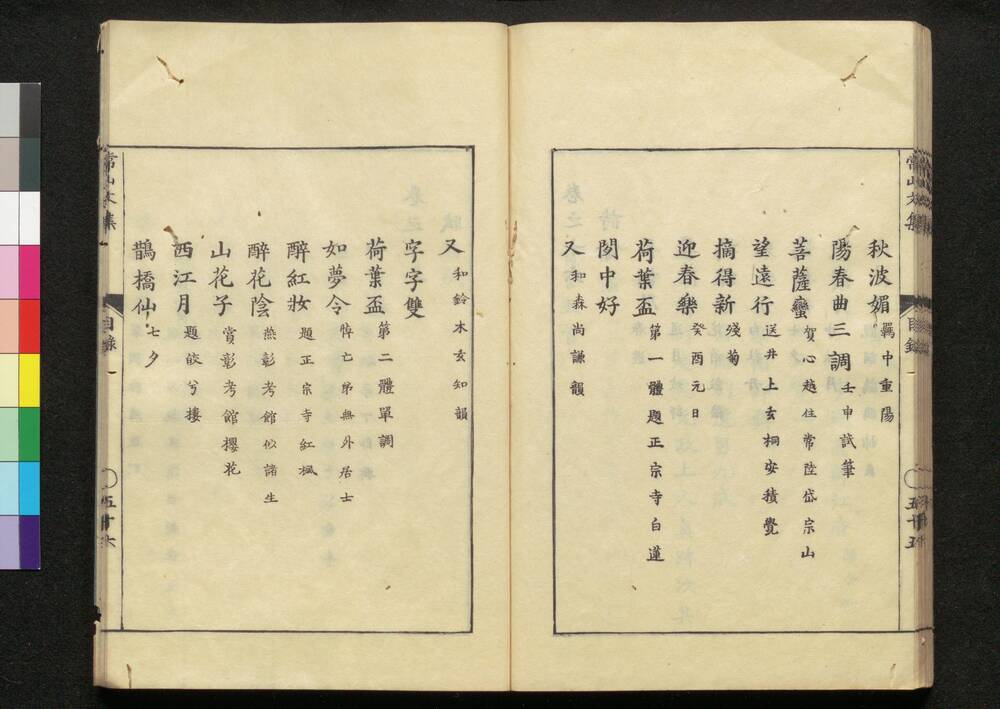 秋波媚 羈中重陽
陽春曲三調 壬申試筆
菩薩蠻 賀心越住常陸岱宗山
望遠行 送井上玄桐安積覺
摘得新 殘菊
迎春樂 癸酉元日
荷葉盃 第一體題正宗寺白蓮
閑中好
又 和森尚謙韻
常山文集
目錄
五十五
又 和鈴木玄知韻
字字雙
荷葉盃 第二體單調
如夢令 悼亡弟無外居士
醉紅妝 題正宗寺紅楓
醉花陰 燕彰考館似諸生
山花子 賞彰考館櫻花
西江月 題皎兮樓
鵲橋仙 七夕
常山文集
目錄
五十六